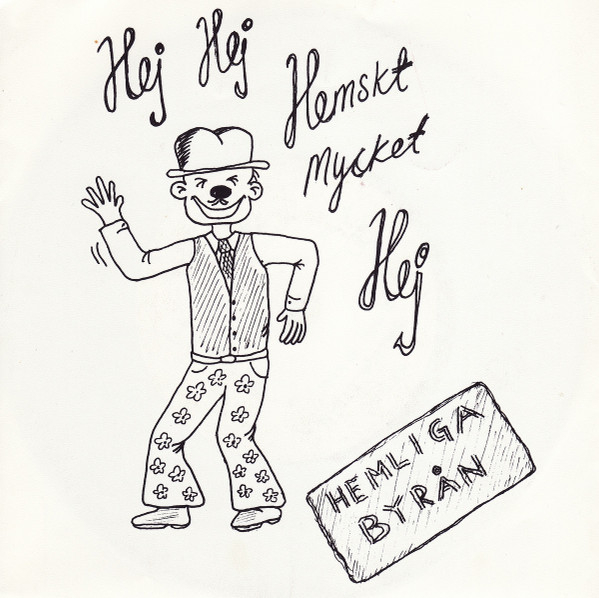 Hej Hej
Hemskt
mycket
Hej
HEMLIGA
BYRÅN